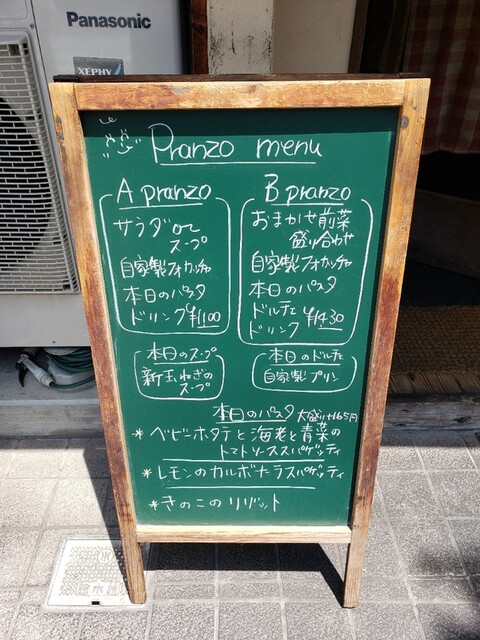 Panasonic
XEPHY
Pranzo menu
A pranzo
サラダor
スープ
自家製フォカッチャ
本日のパスタ
ドリンク ¥1100
B pranzo
おまかせ前菜
盛り合わせ
自家製フォカッチャ
本日のパスタ
ドルチェ
ドリンク ¥1430
本日のスープ
新玉ねぎの
スープ
本日のドルチェ
自家製プリン
本日のパスタ 大盛り+165円
*ベビーホタテと海老と青菜の
トマトソーススパゲッティ
*レモンのカルボナーラスパゲッティ
*きのこのリゾット